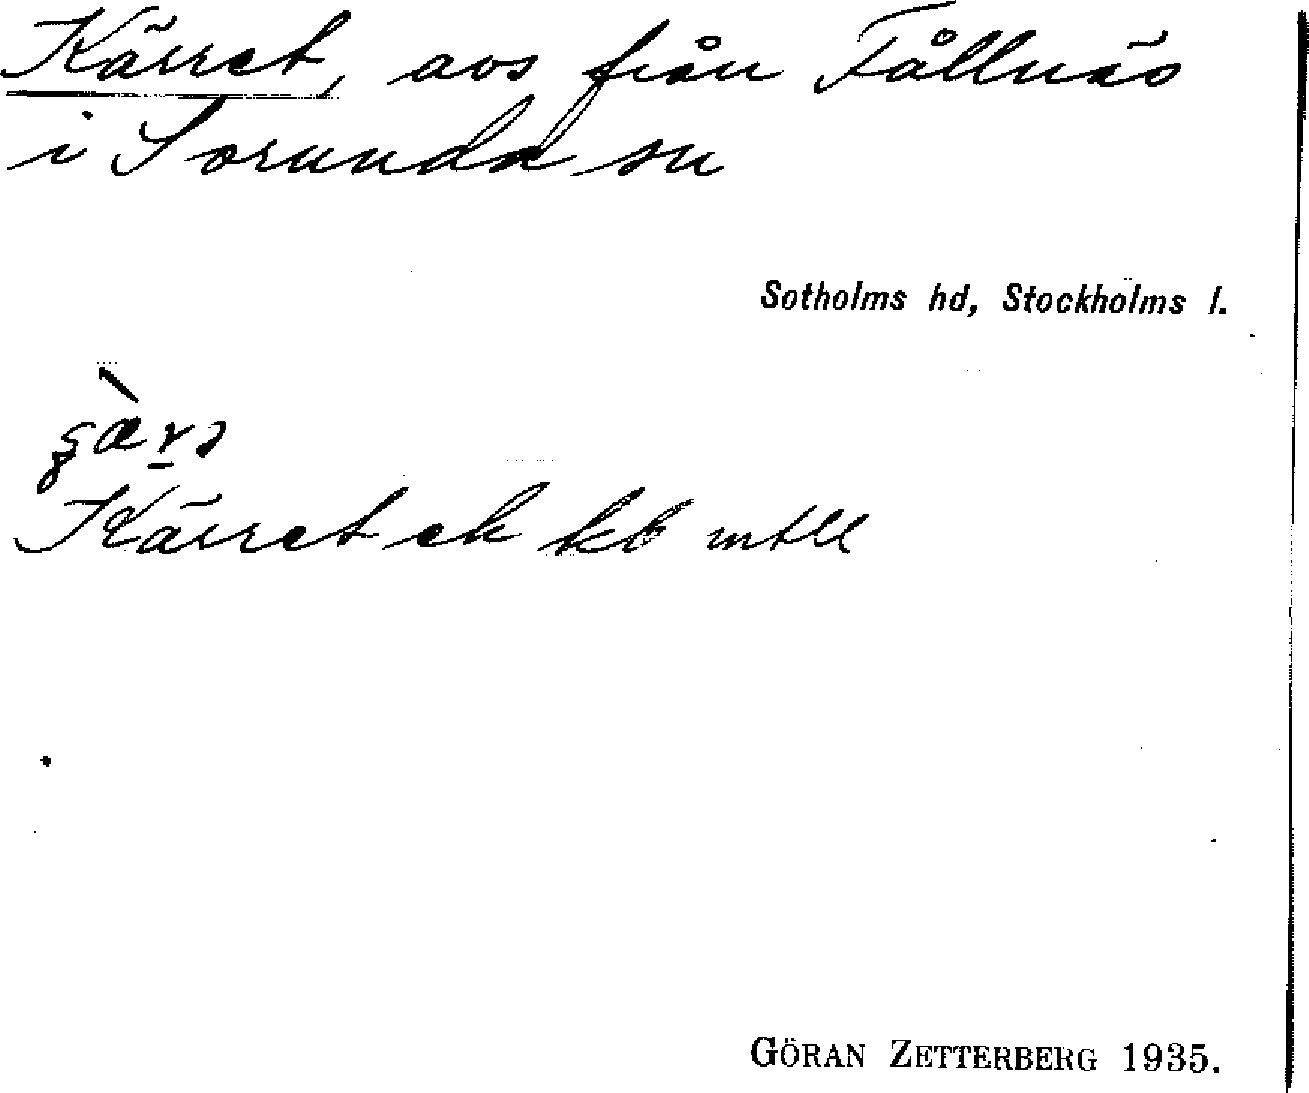 Kärret, avs från Fållnäs
i Sorunda sn
Sotholms hd, Stockholms l.
Kärret ek kb mtll
GÖRAN ZETTERBERG 1935.